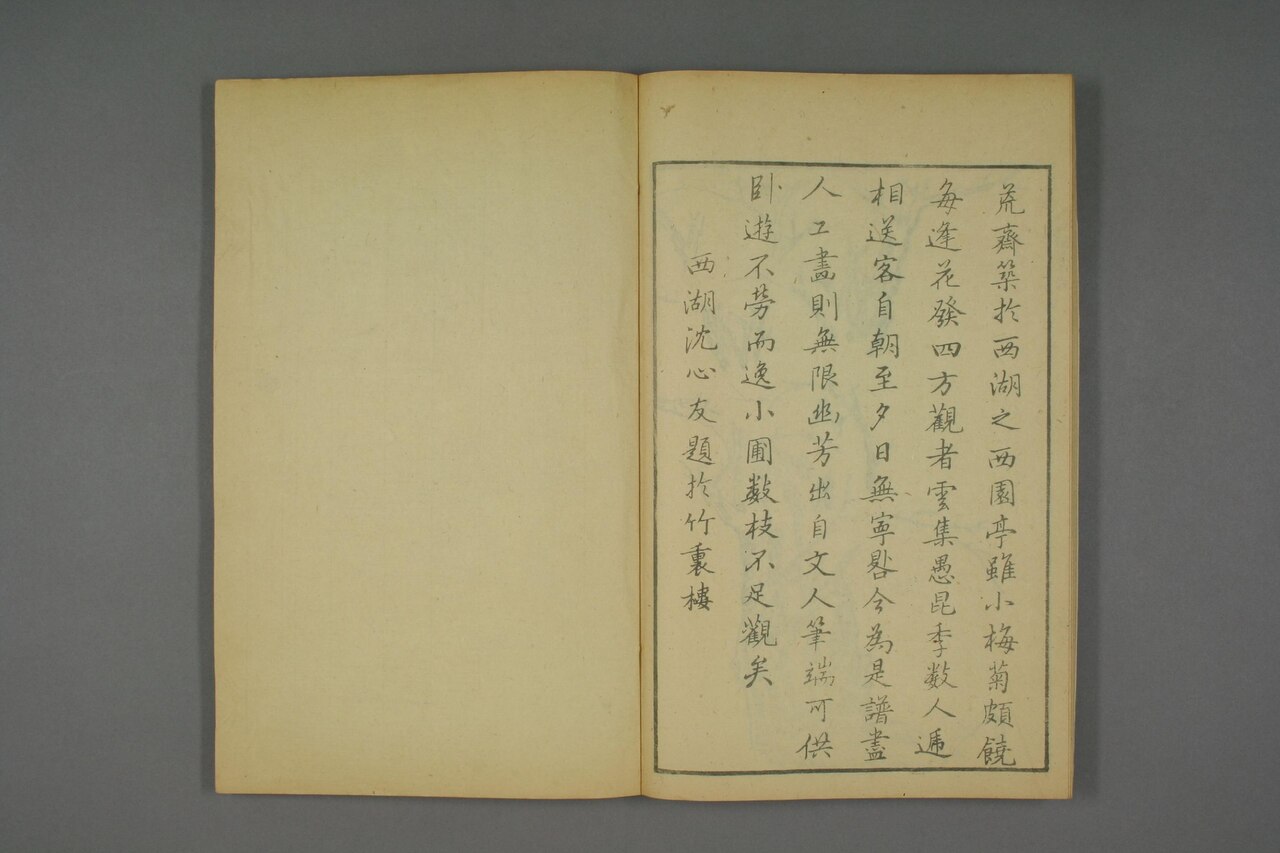 荒齋築於西湖之西園亭雖小梅菊頗饒
每逢花發四方觀者雲集愚昆季数人遞
相送客自朝至夕日無寧晷今為是譜盡
人工畫則無限幽芳出自文人筆端可供
卧遊不勞而逸小圃数枝不足觀矣
西湖沈心友題於竹裏樓